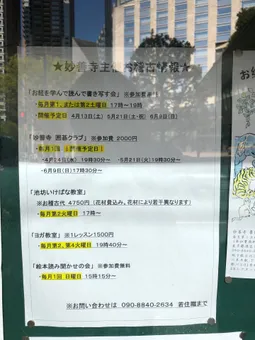 ★妙善寺主催お稽古情報★
「お経を学んで読んで書き写す会」 ※参加費
・毎月第1、または第2土曜日 17時～19時
・開催予定日 4月13日(土) 5月21日(火・祝) 6月8日(土)
「妙善寺 囲碁クラブ」 ※参加費 2000円
・毎月1回
・4月24日(水) 19時30分～ ・5月21日(火) 19時30分～
・6月9日(日)17時30分～
「池坊いけばな教室」
※お稽古代 4750円(花材費込み。花材により若干異なります)
・毎月第2火曜日 17時～
「ヨガ教室」 ※1レッスン1500円
・毎月第2、第4火曜日 19時40分～
「絵本読み聞かせの会」 ※参加費無料
・毎月1回 日曜日 15時15分～
※お問い合わせは 090-8840-2634 若住職まで